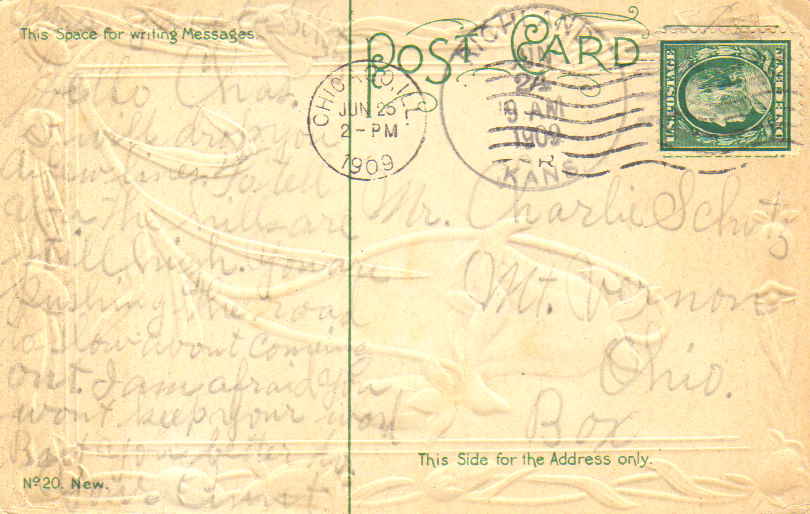 This Space for writing Messages.
POST CARD
Hello Chas.
drop you
a few lines. To tell
you the hills are
still high. You are
pushing the road
so slow about coming
out. I am afraid you
wont keep your word
But you better
CHICAGO, ILL.
JUN 25
2-PM
1909
RICHLAND
JUN
24
9 AM
1909
KANS
U.S. POSTAGE
ONE CENT
Mr. Charlie Schotz
Mt. Vernon
Ohio.
Box
This Side for the Address only.
No 20. New.